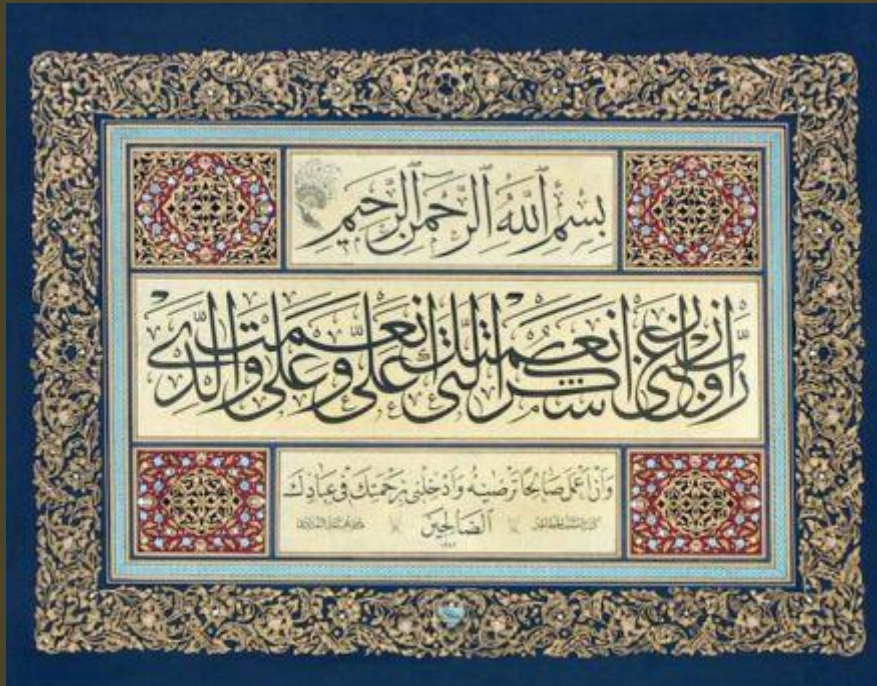 بِسْمِ اللهِ الرَّحْمٰنِ الرَّحِيمِ
رَبِّ اَوْزِعْنِى اَنْ اَشْكُرَ نِعْمَتَكَ الَّتِى اَنْعَمْتَ عَلَىَّ وَعَلٰى وَالِدَىَّ
وَاَنْ اَعْمَلَ صَالِحًا تَرْضٰيهُ وَاَدْخِلْنِى بِرَحْمَتِكَ فِى عِبَادِكَ
الصَّالِحِينَ